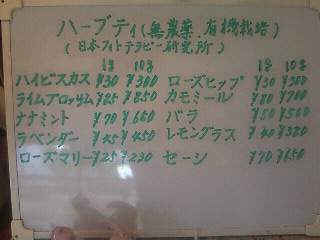 ハーブティ(無農薬.有機栽培)
(日本フィトテラピー研究所)
1g 10g 1g 10g
ハイビスカス ¥30 ¥300 ローズヒップ ¥30 ¥300
ライムブロッサム ¥85 ¥850 カモミール ¥80 ¥700
ナナミント ¥70 ¥650 バラ ¥50 ¥500
ラベンダー ¥45 ¥450 レモングラス ¥40 ¥380
ローズマリー ¥25 ¥230 セージ ¥70 ¥650